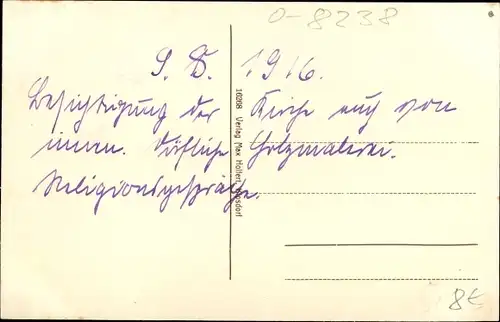 0-8238
9. 8. 1916.
Besichtigung der Kirche auch von
innen. Köstliche Holzmalerei.
Religionsgespräche.
16268 Verlag Max Hollert,
8€